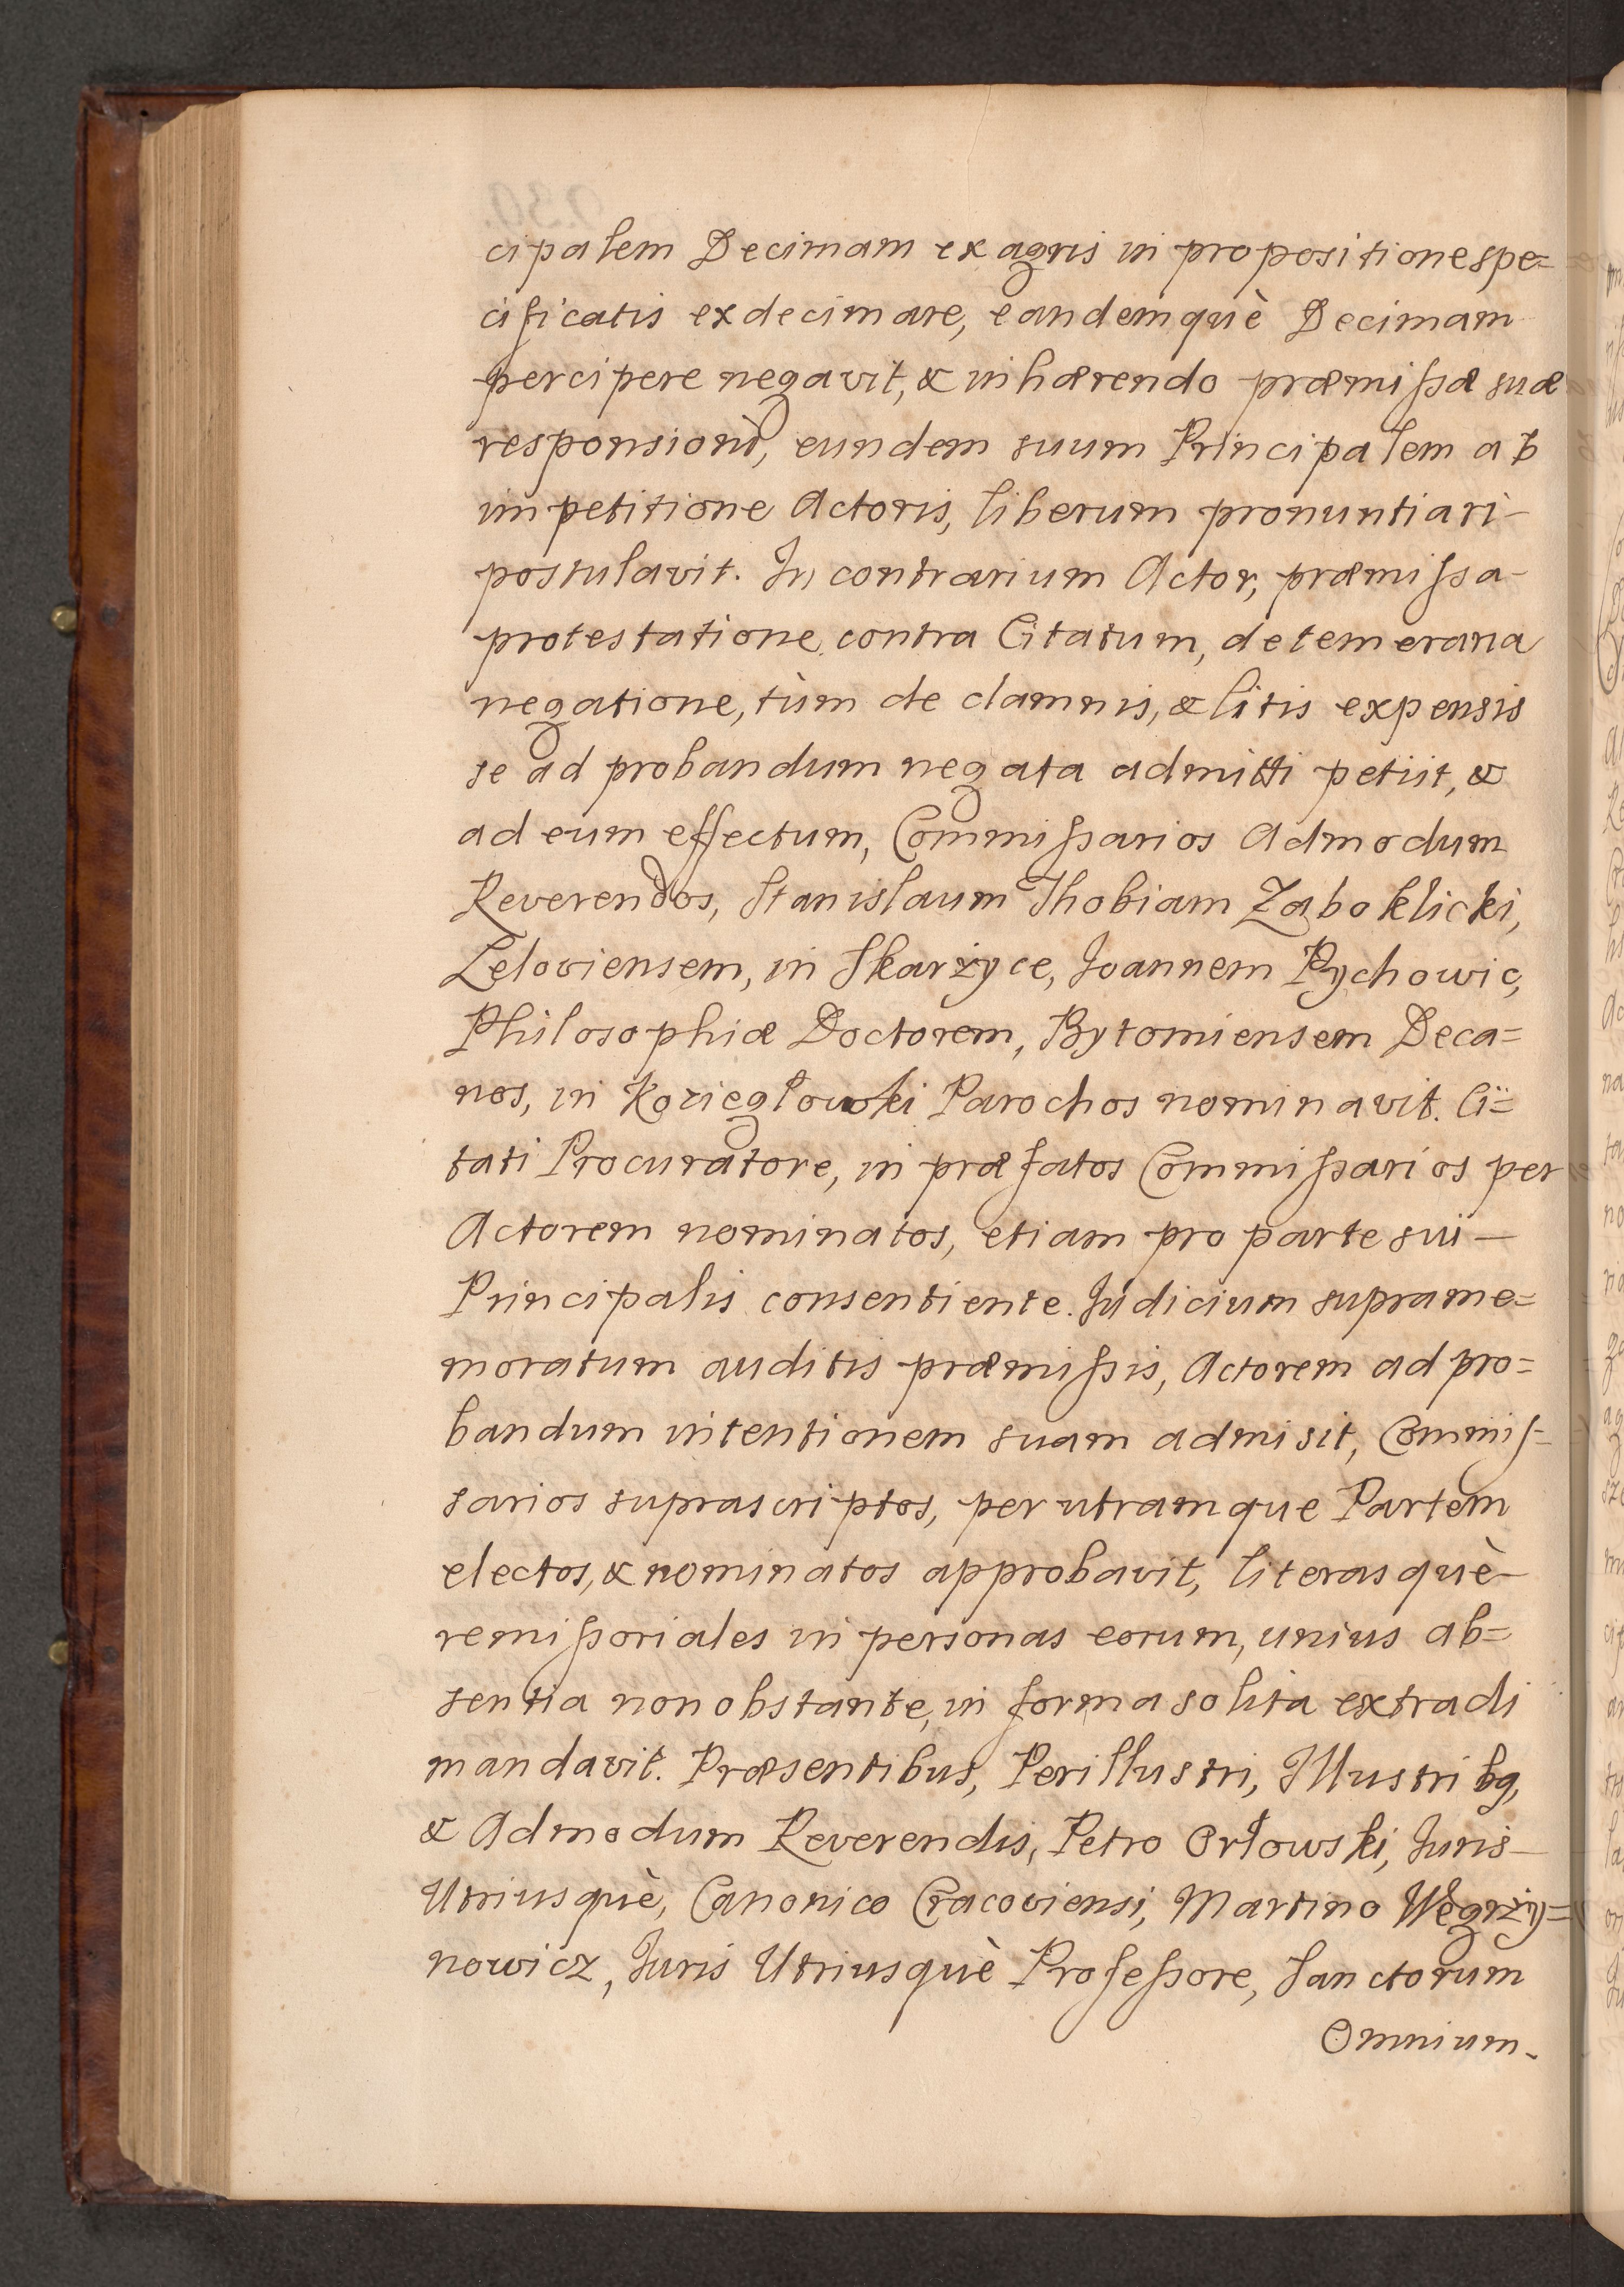 cipalem Decimam ex agris in propositione spe=
cificatis exdecimare, eandemquè Decimam
percipere negavit, & inhærendo præmissæ suæ
responsioni, eundem suum Principalem ab
impetitione Actoris, liberum pronuntiari-
postulavit. In contrarium Actor, præmissa-
protestatione contra Citatum, de temeraria
negatione, tùm de damnis, & litis expensis
se ad probandum negata admitti petiit, &
ad eum effectum, Commissarios Admodum
Reverendos, Stanislaum Thobiam Zaboklicki,
Leloviensem, in Skarżyce, Joannem Pychowic,
Philosophiæ Doctorem, Bytomiensem Deca=
nos, in Koziegłowki Parochos nominavit. Ci=
tati Procuratore, in præfatos Commissarios per
Actorem nominatos, etiam pro parte sui-
Principalis consentiente. Judicium suprame=
moratum auditis præmissis, Actorem ad pro=
bandum intentionem suam admisit, Commis=
sarios suprascriptos, per utramque Partem
electos, & nominatos approbavit, literasquè-
remissoriales in personas eorum, unius ab=
sentia non obstante, in forma solita extradi
mandavit. Præsentibus, Perillustri, Illustribq,
& Admodum Reverendis, Petro Orłowski, Juris-
Utriusquè, Canonico Cracoviensi, Martino Węgrzy=
nowicz, Juris Utriusquè Professore, Sanctorum
Omnium.